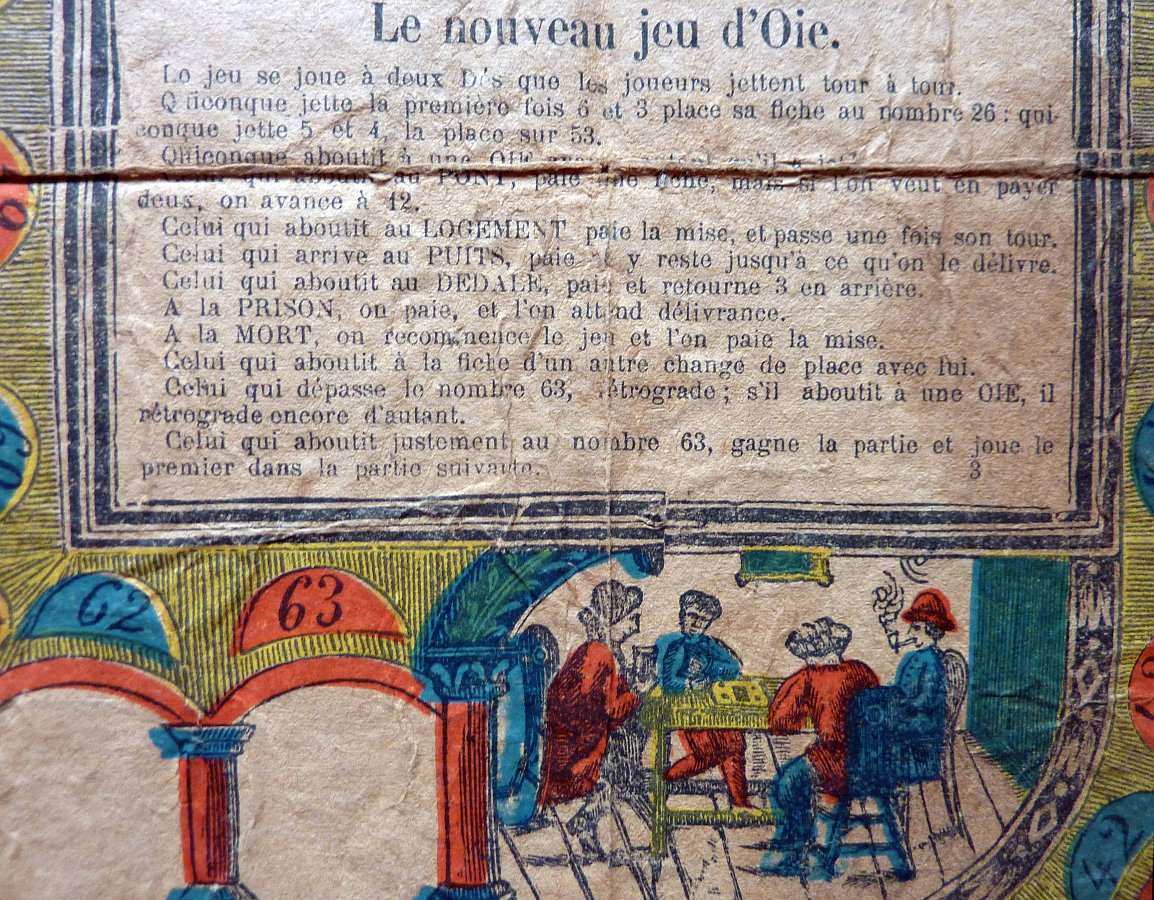 Le nouveau jeu d'Oie.
Le jeu se joue à deux Dés que les joueurs jettent tour à tour.
Quiconque jette la première fois 6 et 3 place sa fiche au nombre 26 : qui-
conque jette 5 et 4, la place sur 53.
Quiconque aboutit à une OIE
qui aboutit au PONT, paie une fiche, mais si l'on veut en payer
deux, on avance à 12.
Celui qui aboutit au LOGEMENT paie la mise, et passe une fois son tour.
Celui qui arrive au PUITS, paie et y reste jusqu'à ce qu'on le délivre.
Celui qui aboutit au DEDALE, paie et retourne 3 en arrière.
A la PRISON, on paie, et l'on attend délivrance.
A la MORT, on recommence le jeu et l'on paie la mise.
Celui qui aboutit à la fiche d'un autre change de place avec lui.
Celui qui dépasse le nombre 63, rétrograde ; s'il aboutit à une OIE, il
rétrograde encore d'autant.
Celui qui aboutit justement au nombre 63, gagne la partie et joue le
premier dans la partie suivante.
3
62
63
42